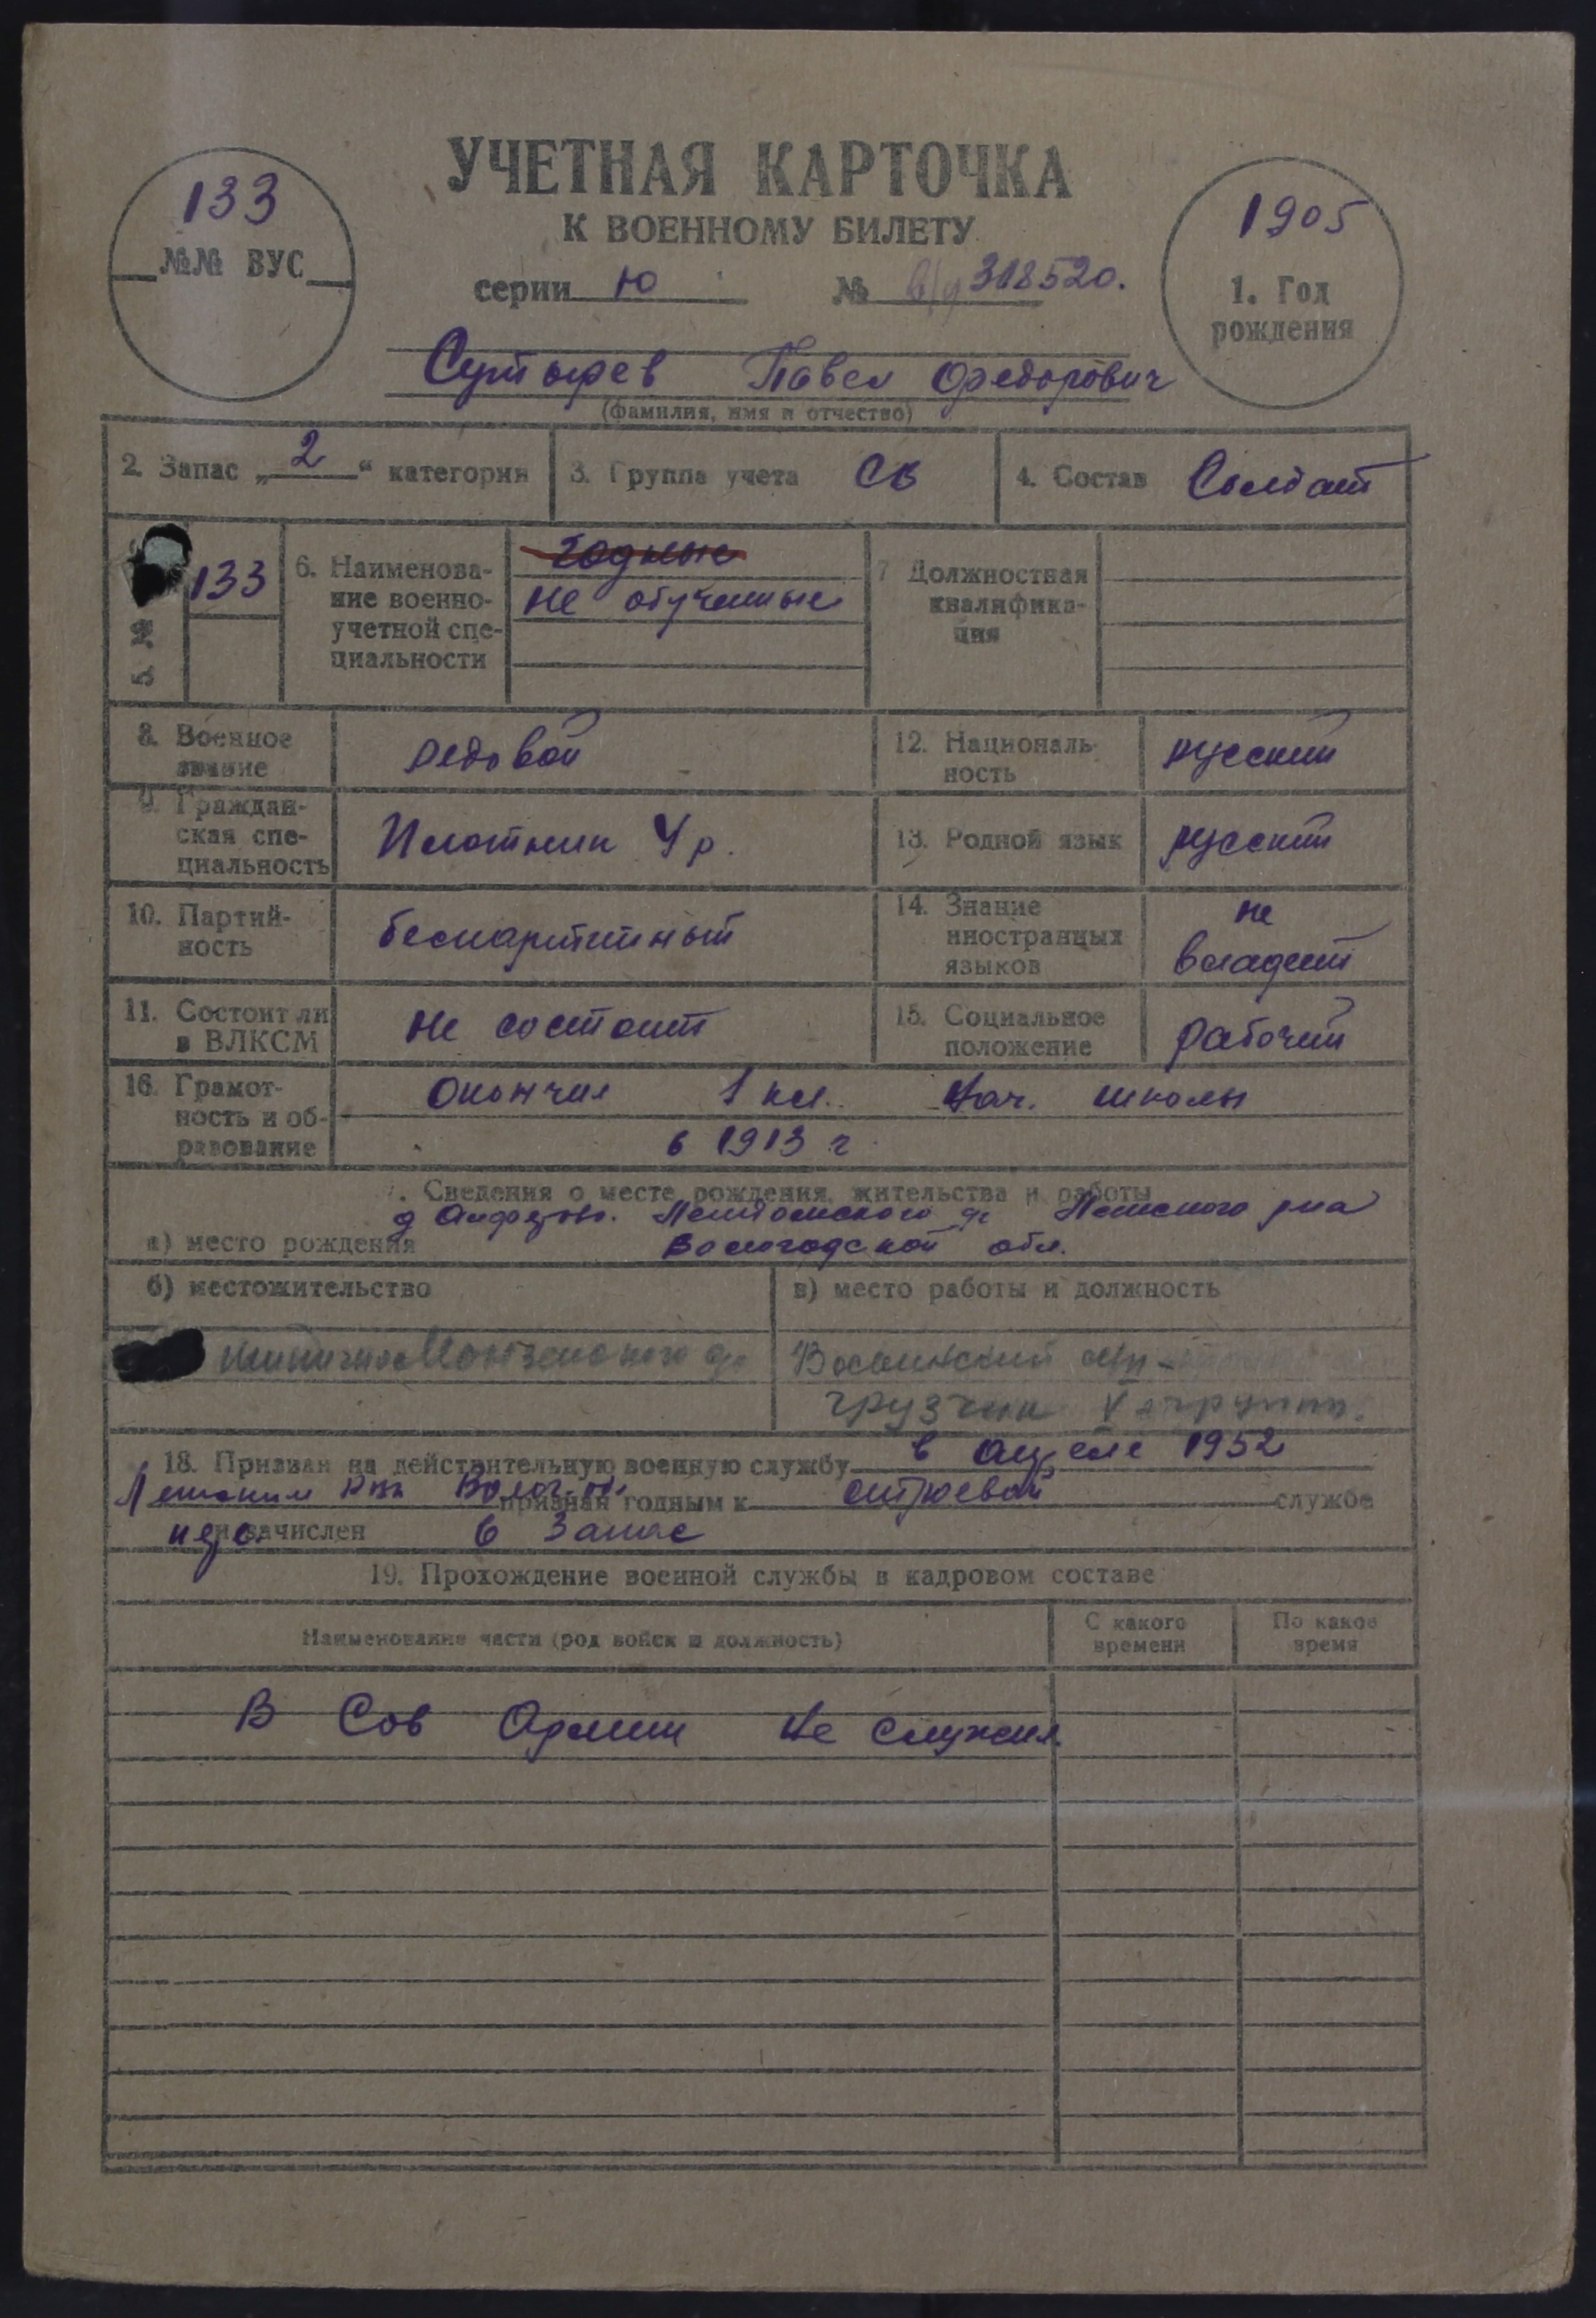 УЧЕТНАЯ КАРТОЧКА
К ВОЕННОМУ БИЛЕТУ
133
№№ ВУС
серии Ю № 318520.
1905
1. Год
рождения
Павел Федорович
(фамилия, имя и отчество)
2. Запас „2“ категория
3. Группа учета СВ
4. Состав Солдат
5. №
133
6. Наименова-
ние военно-
учетной спе-
циальности
годные
не обученные
7 Должностная
квалифика-
ция
8. Военное
звание
редовой
12. Националь-
ность
русский
9. Граждан-
ская спе-
циальность
Плотник 4 р.
13. Родной язык
русский
10. Партий-
ность
беспартийный
14. Знание
иностранных
языков
не
владеет
11. Состоит ли
в ВЛКСМ
не состоит
15. Социальное
положение
рабочий
16. Грамот-
ность и об-
разование
Окончил 1 кл. Нач. школы
в 1913 г
. Сведения о месте рождения, жительства и работы
а) место рождения
Вологодской обл.
б) местожительство
в) место работы и должность
грузчик
18. Призван на действительную военную службу в апреле 1952
признан годным к строевой службе
и зачислен в Запас
19. Прохождение военной службы в кадровом составе
Наименование части (род войск и должность)
С какого
времени
По какое
время
В Сов Армии не служил